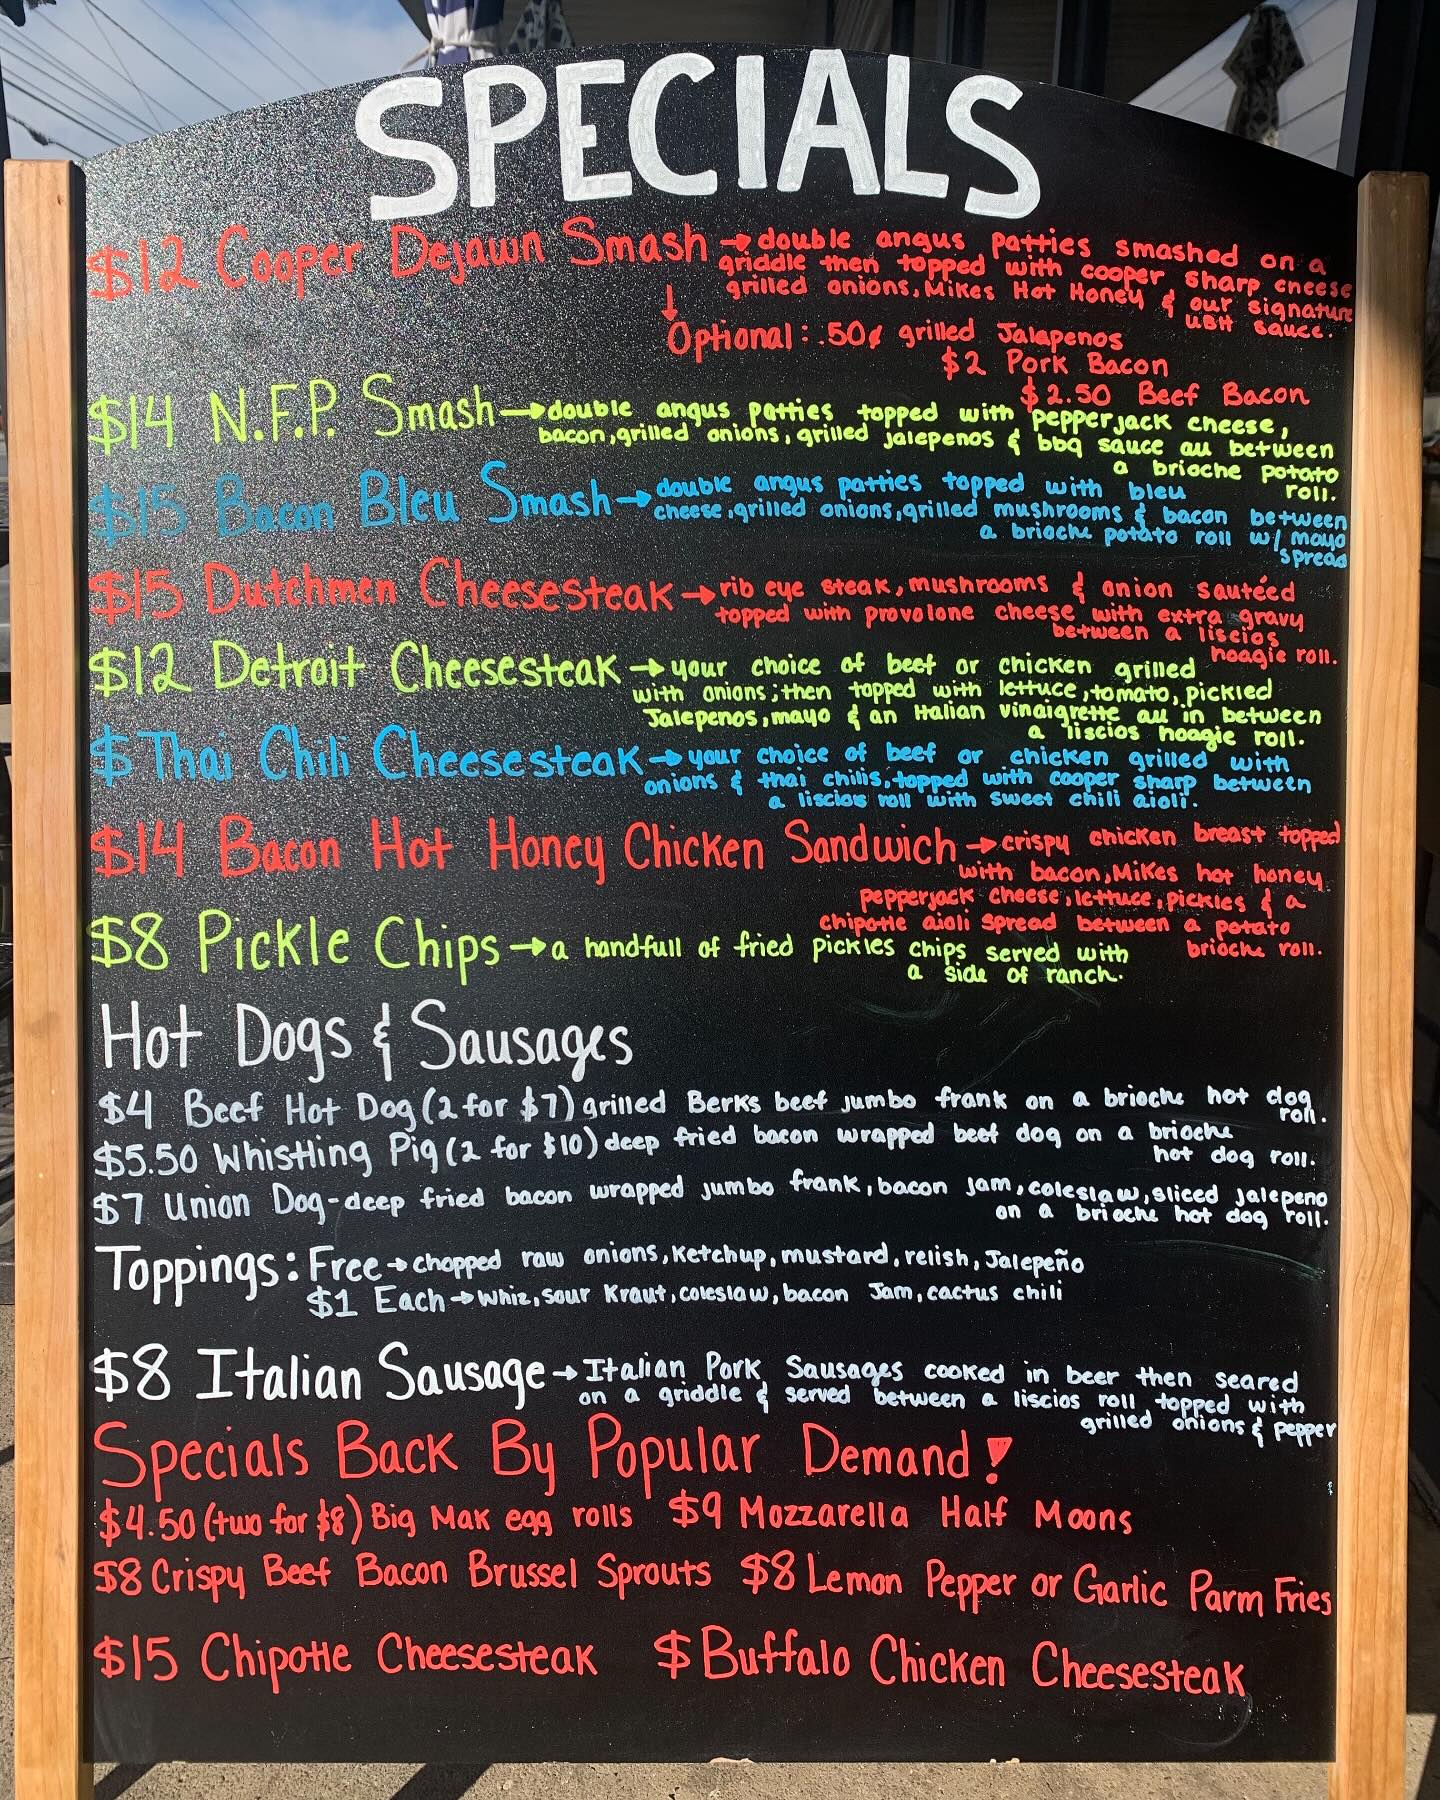 SPECIALS
$12 Cooper Dejawn Smash → double angus patties smashed on a
griddle then topped with cooper sharp cheese
grilled onions, Mikes Hot Honey & our signature
UBH sauce.
↓
Optional: .50¢ grilled Jalapenos
$2 Pork Bacon
$2.50 Beef Bacon
$14 N.F.P. Smash → double angus patties topped with pepperjack cheese,
bacon, grilled onions, grilled jalepenos & bbq sauce all between
a brioche potato
roll.
$15 Bacon Bleu Smash → double angus patties topped with bleu
cheese, grilled onions, grilled mushrooms & bacon between
a brioche potato roll w/ mayo
spread
$15 Dutchmen Cheesesteak → rib eye steak, mushrooms & onion sautéed
topped with provolone cheese with extra gravy
between a liscios
hoagie roll.
$12 Detroit Cheesesteak → your choice of beef or chicken grilled
with onions; then topped with lettuce, tomato, pickled
Jalepenos, mayo & an Italian vinaigrette all in between
a liscios hoagie roll.
$ Thai Chili Cheesesteak → your choice of beef or chicken grilled with
onions & thai chilis, topped with cooper sharp between
a liscios roll with sweet chili aioli.
$14 Bacon Hot Honey Chicken Sandwich → crispy chicken breast topped
with bacon, Mikes hot honey
pepperjack cheese, lettuce, pickles & a
chipotle aioli spread between a potato
brioche roll.
$8 Pickle Chips → a handfull of fried pickles chips served with
a side of ranch.
Hot Dogs & Sausages
$4 Beef Hot Dog (2 for $7) grilled Berks beef jumbo frank on a brioche hot dog
roll.
$5.50 Whistling Pig (2 for $10) deep fried bacon wrapped beef dog on a brioche
hot dog roll.
$7 Union Dog - deep fried bacon wrapped jumbo frank, bacon jam, coleslaw, sliced jalepeno
on a brioche hot dog roll.
Toppings: Free → chopped raw onions, Ketchup, mustard, relish, Jalepeño
$1 Each → whiz, sour Kraut, coleslaw, bacon Jam, cactus chili
$8 Italian Sausage → Italian Pork Sausages cooked in beer then seared
on a griddle & served between a liscios roll topped with
grilled onions & pepper
Specials Back By Popular Demand!
$4.50 (two for $8) Big Mak egg rolls $9 Mozzarella Half Moons
$8 Crispy Beef Bacon Brussel Sprouts $8 Lemon Pepper or Garlic Parm Fries
$15 Chipotle Cheesesteak $ Buffalo Chicken Cheesesteak